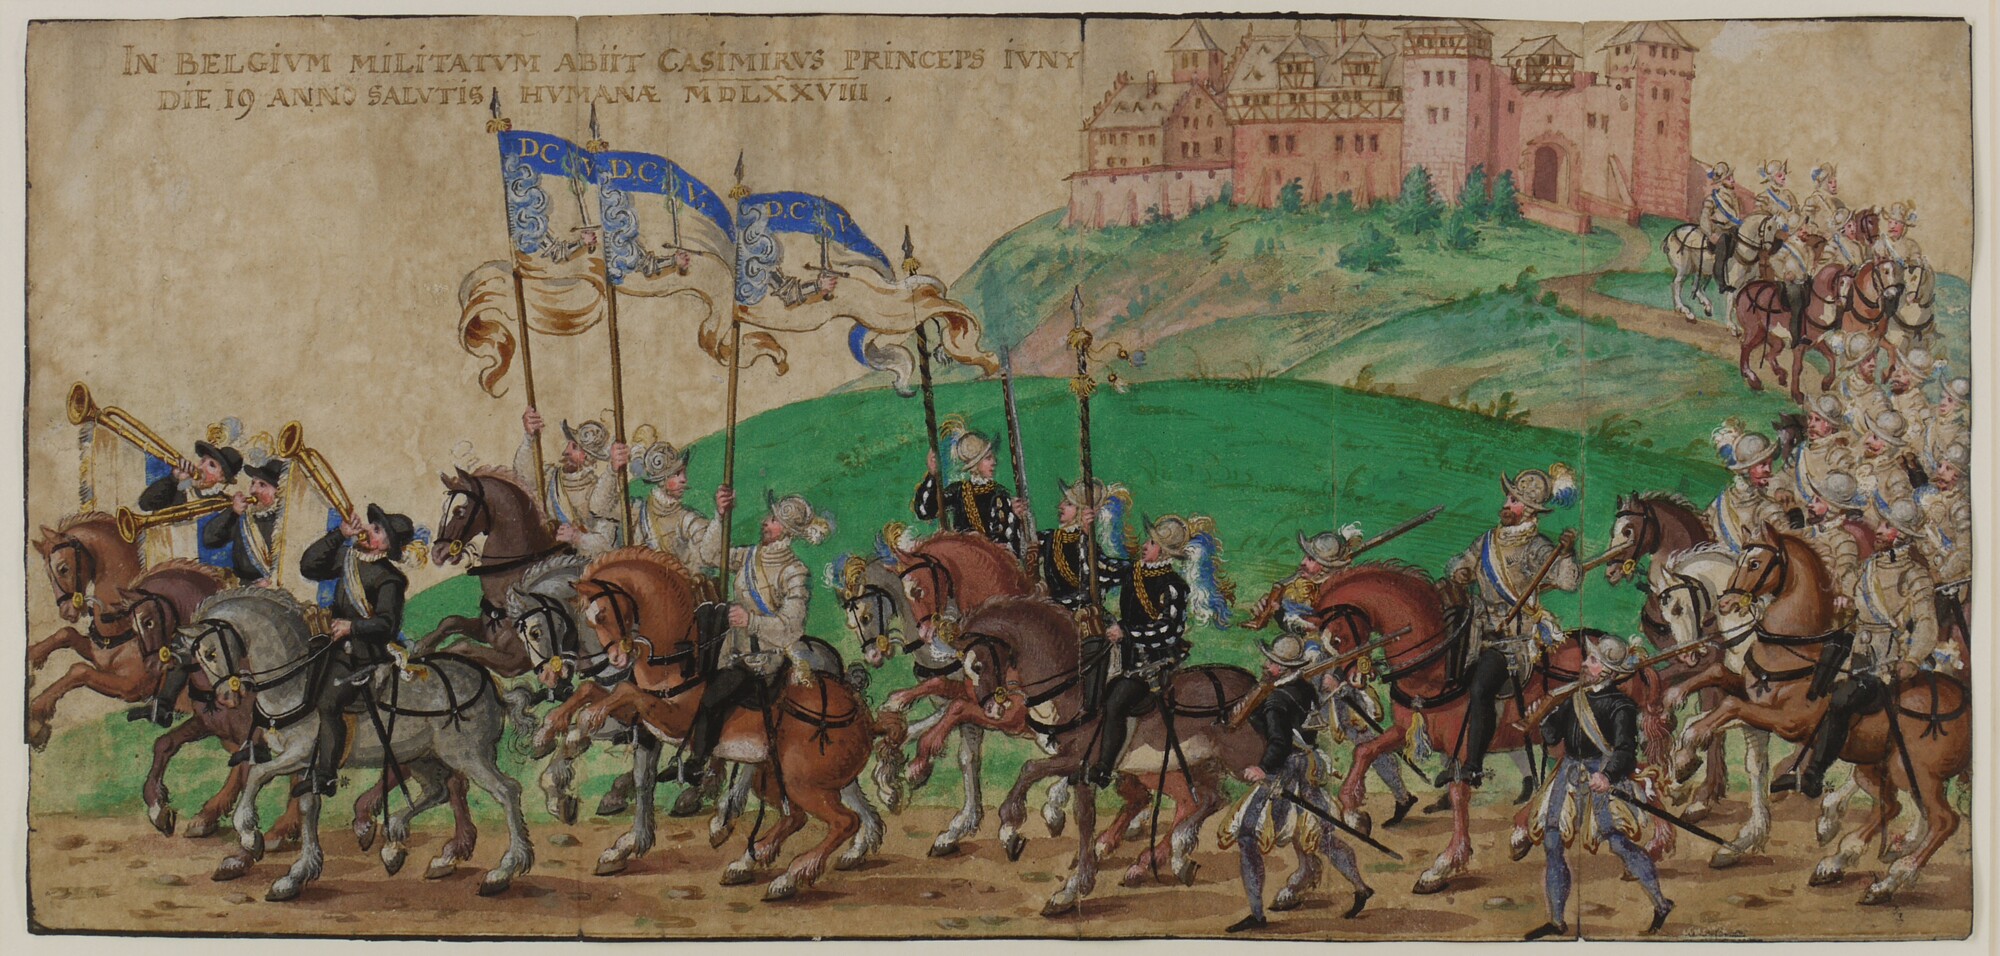 IN BELGIVM MILITATVM ABIIT CASIMIRVS PRINCEPS IVNY
DIE 19 ANNO SALVTIS HVMANÆ MDLXXVIII.
D C V
D.C V.
D.C V